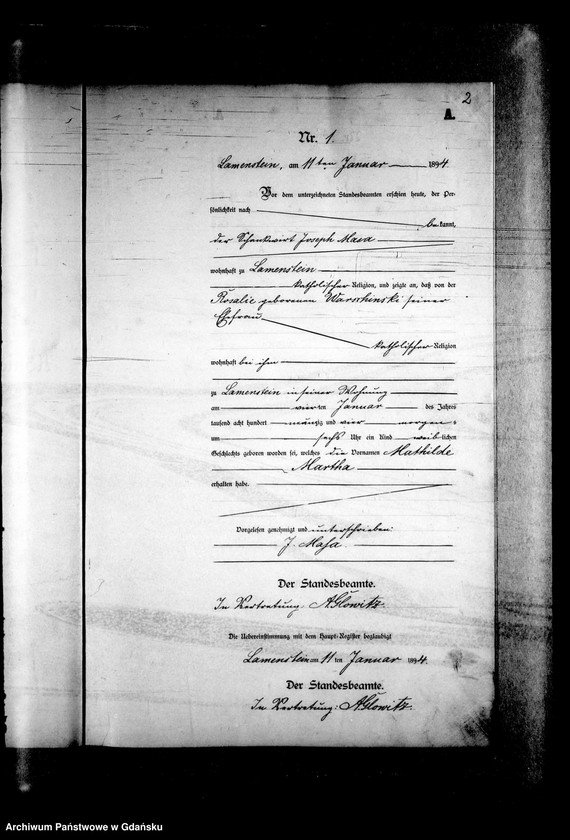 2
A.
Nr. 1.
Lamenstein, am 11 ten Januar 1894.
Vor dem unterzeichneten Standesbeamten erschien heute, der Per-
sönlichkeit nach
bekannt,
der Schankwirt Joseph Masa
wohnhaft zu Lamenstein
katholischer Religion, und zeigte an, daß von der
Rosalie geborenen Warschinski seiner
Ehefrau
katholischer Religion
wohnhaft bei ihm
zu Lamenstein in seiner Wohnung
am vierten Januar des Jahres
tausend acht hundert neunzig und vier morgens
um sechs Uhr ein Kind weiblichen
Geschlechts geboren worden sei, welches die Vornamen Mathilde
Martha
erhalten habe.
Vorgelesen genehmigt und unterschrieben:
J. Masa
Der Standesbeamte.
In Vertretung: A. Glowitz.
Die Uebereinstimmung mit dem Haupt-Register beglaubigt
Lamenstein am 11 ten Januar 1894.
Der Standesbeamte.
In Vertretung: A. Glowitz.
Archiwum Państwowe w Gdańsku